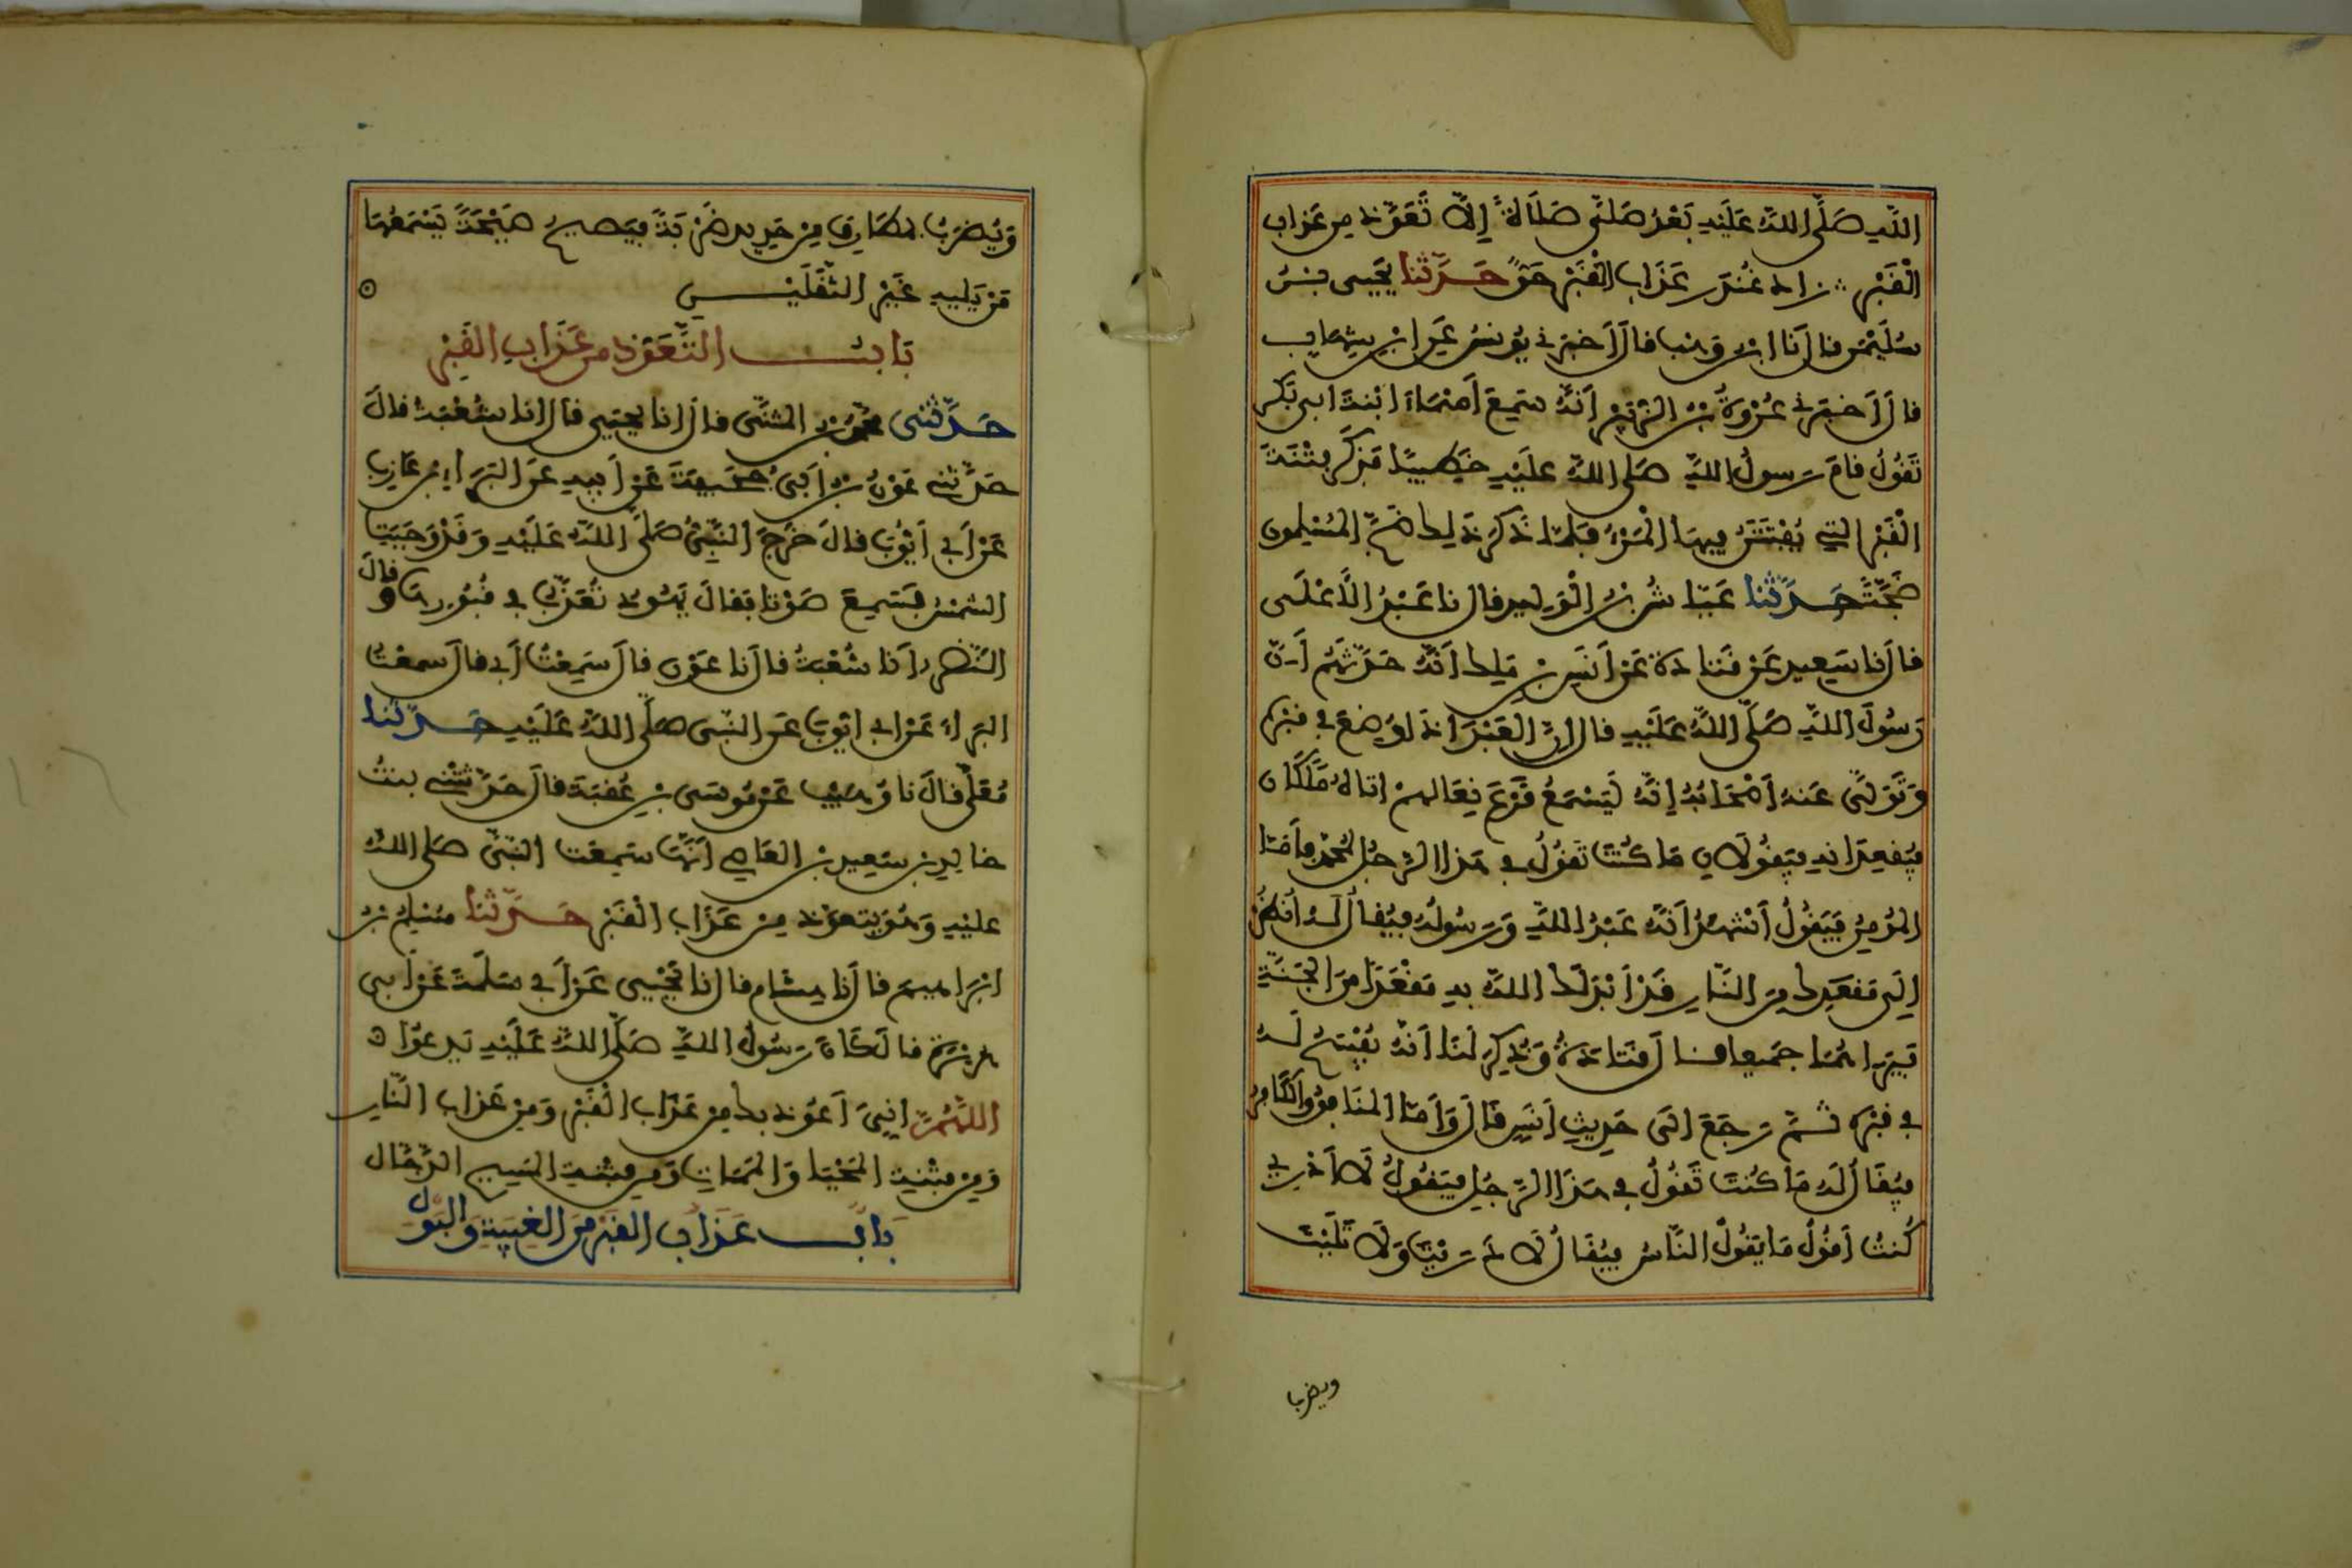 اللَّهِ صَلَّى اللَّهُ عَلَيْهِ بَعْدُ صَلَّى صَلَاةً إِلَّا تَعَوَّذَ مِن عَذَاب
الْقَبْرِ زاد غُنْدَر عَذَابُ الْقَبْرِ حَقٌّ حَدَّثَنا يَحْيَى بْنُ
سُلَيْمٰنَ قال أَنَا ابْن وَهْب قال أَخبَرَنِي يُونسُ عَنِ ابْنِ شِهَابٍ
قال أَخبَرَنِي عُرْوَةُ بْنُ الزُّبَيْرِ أَنَّهُ سَمِعَ أَسْمَاءَ ابْنَةَ أبي بَكرٍ
تَقُولُ قَامَ رَسولُ اللَّهِ صَلَّى اللَّهُ عَلَيْهِ خَطِيبًا فَذَكَرَ فِتْنَةَ
الْقَبْرِ التِي يُفْتَتَنُ فِيهَا الْمَرْءُ فَلَمَّا ذَكَرَ ذَلِكَ ضَجَّ المُسْلِمون
ضَجَّةً حَدَّثَنا عَيَّاشُ بْنُ الْوَلِيدِ قال نا عَبْدُ الْأَعْلَى
قال أنا سَعِيد عَنْ قَتادَةَ عَنْ أَنَسِ بْنِ مٰلِك أَنَّهُ حَدَّثَهُمْ أَنَّ
رَسُولَ اللَّهِ صَلَّى اللَّهُ عَلَيْهِ قال إِنَّ الْعَبْدَ إذَا وُضِعَ في قَبْرِهِ
وَتَوَلَّى عَنهُ أَصْحَابُهُ إِنَّهُ لَيَسْمَعُ قَرْعَ نِعَالِهِمْ أتاهُ مَلَكَانِ
فيُقعِدَانِهِ فيَقُولَانِ مَا كُنْتَ تَقُولُ في هَذَا الرَّجُلِ لمُحَمَّد فَأَمَّا
المُؤمِنُ فَيَقُولُ أَشْهَدُ أَنَّهُ عَبْدُ اللَّهِ وَرَسُولُهُ فيُقَالُ لَهُ انْظُرْ
إِلَى مَقعَدِكَ مِنَ النَّارِ قَدْ أَبْدَلَكَ اللَّهُ بِهِ مَقْعَدًا مِنَ الجَنَّةِ
فيَرَاهُمَا جَمِيعا قال قَتَادَةُ وَذُكِرَ لَنَا أَنَّهُ يُفْسَحُ لَهُ
في قَبْرِهِ ثُمَّ رَجَعَ إلَى حَدِيثِ أنَسٍ قَالَ وَأَمَّا المُنَافِقُ وَالْكَافِرُ
فيُقَالُ لَهُ مَا كُنْتَ تَقُولُ في هَذَا الرَّجُلِ فيَقُولُ لَا أَدْرِي
كُنتُ أَقُولُ مَا يَقُولُ النَّاسُ فيُقَالُ لَا دَرَيْتَ وَلَا تَلَيْتَ
ويضرب
وَيُضْرَبُ بمطَارِق مِنْ حَدِيدٍ ضَرْبَةً فيَصِيحُ صَيْحَةً يَسْمَعُهَا
مَنْ يَلِيهِ غَيْر الثَّقَلَيْنِ
بَابُ التَّعَوُّذِ مِن عَذَابِ الْقَبْرِ
حَدَّثَنِي مُحَمَّد بْن المُثَنَّى قال أنا يحيَى قال أنا شُعْبَةُ قالَ
حَدَّثَنِي عَوْنُ بْنُ أَبِي جُحَيْفَةَ عَنْ أَبِيهِ عَنِ البَرَاءِ بْنِ عَازِبٍ
عَنْ أَبي أَيُّوبَ قالَ خَرَجَ النَّبِيُّ صَلَّى اللَّهُ عَلَيْهِ وَقَدْ وَجَبَتِ
الشَّمْسُ فسَمِعَ صَوْتا فقالَ يَهُود تُعَذَّبُ في قُبُورِهَا وَقَالَ
النَّضْر أَنَا شُعْبَةُ قال أَنا عَوْن قال سَمِعْتُ أَبِي قال سَمِعْتُ
البَرَاءَ عَنْ أَبِي أَيُّوبَ عَنِ النَّبِيِّ صَلَّى اللَّهُ عَلَيْهِ حَدَّثَنا
مُعَلًّى قالَ نا وُهَيْب عَنْ مُوسَى بْنِ عُقبَةَ قال حَدَّثَتْنِي بنتُ
خَالِدِ بْنِ سَعِيدِ بْنِ العَاصِي أَنَّهَا سَمِعَت النَّبِيَّ صَلَّى اللَّهُ
عليْهِ وَهُوَ يَتَعَوَّذ مِنْ عَذَاب الْقَبْرِ حَدَّثَنا مُسْلِم بْنُ
ابْرَاهِيمَ قال أَنَا هِشَام قال انا يَحْيى عَنْ أَبِي سَلَمَةَ عَنْ أَبِي
هُرَيْرَةَ قالَ كَانَ رَسُولُ اللَّهِ صَلَّى اللَّهُ عَلَيْهِ يَدعُوا
اللَّهُمَّ إنِّي أَعُوذ بكَ مِن عَذَابِ الْقَبْرِ وَمِنْ عَذَابِ النَّارِ
وَمِنْ فِتْنَةِ المَحْيَا وَالمَمَاتِ وَمِن فِتْنَةِ المَسِيحِ الدَّجَّال
بَابُ عَذَابِ القَبْرِ مِنَ الغِيبَةِ وَالبَوْلِ